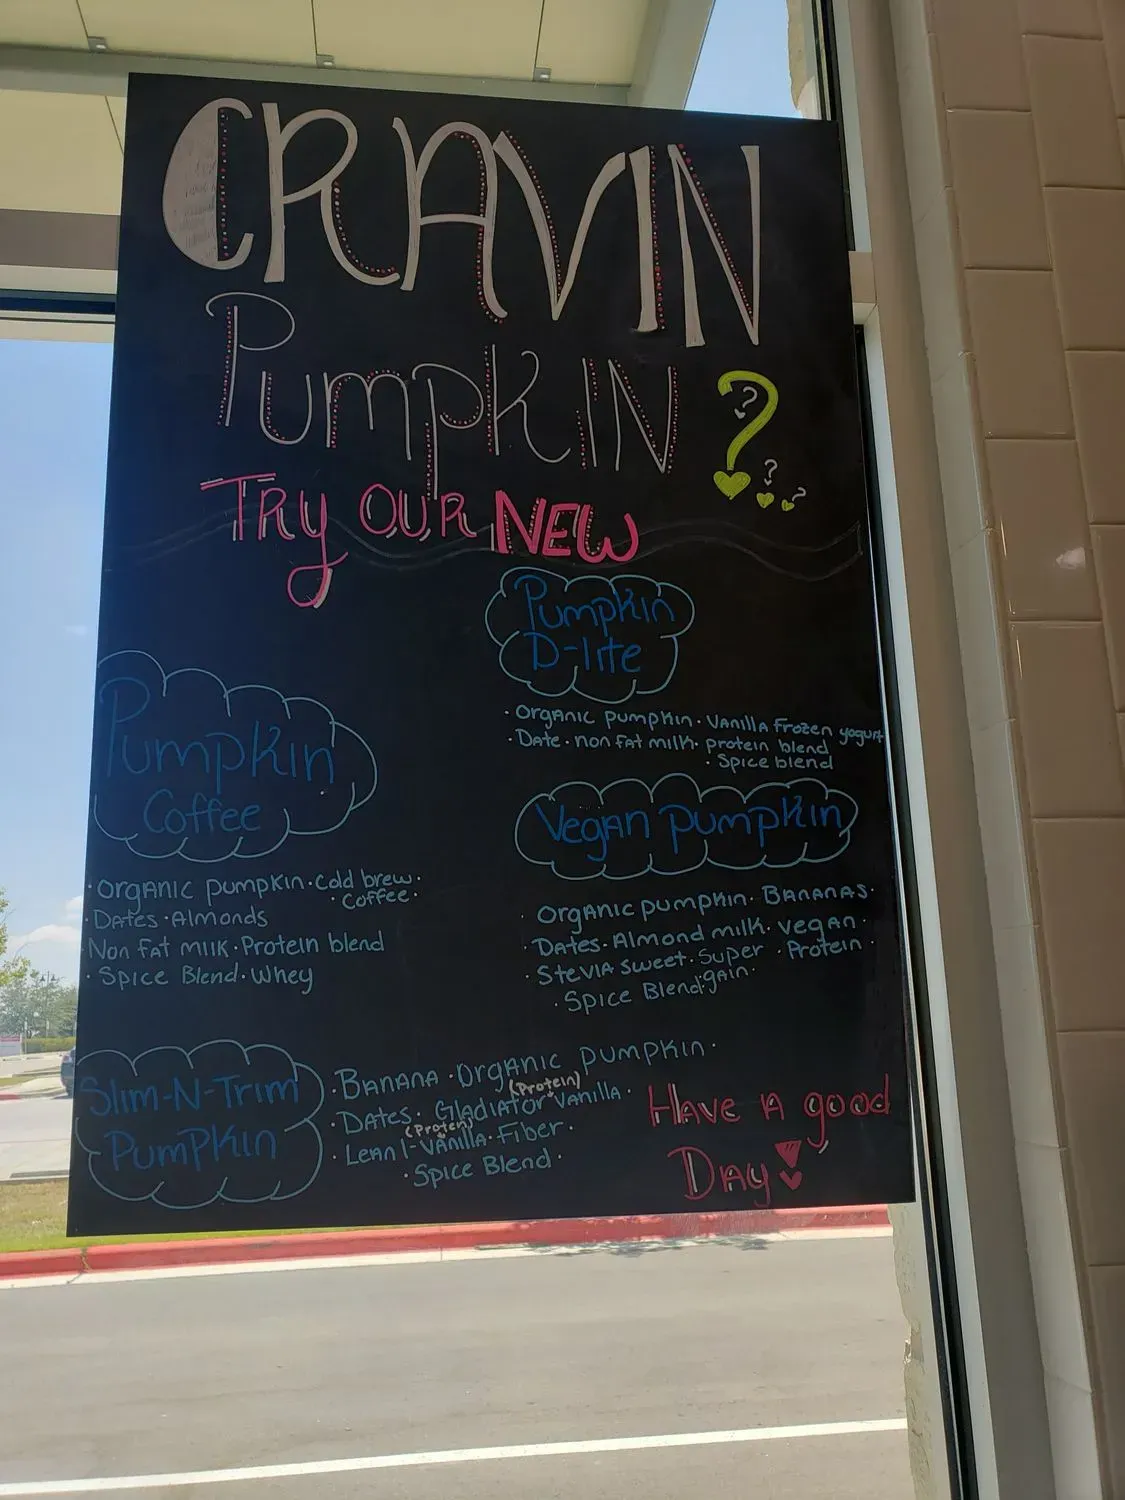 CRAVIN
PumpkIN ?
Try OUR NEW
Pumpkin
D-lite
· Organic pumpkin · Vanilla Frozen yogurt
· Date · non fat milk · protein blend
· Spice blend
Pumpkin
Coffee
· Organic pumpkin · Cold brew ·
· Coffee ·
· Dates · Almonds
Non Fat milk · Protein blend
· Spice Blend · Whey
Vegan pumpkin
· Organic pumpkin · Bananas ·
· Dates · Almond milk · vegan ·
· Stevia sweet · Super · Protein ·
· Spice Blend · gain ·
Slim-N-Trim
Pumpkin
· Banana · Organic pumpkin ·
(Protein)
· Dates · Gladiator Vanilla ·
(Protein)
· Lean 1 - Vanilla · Fiber ·
· Spice Blend ·
Have A good
Day!